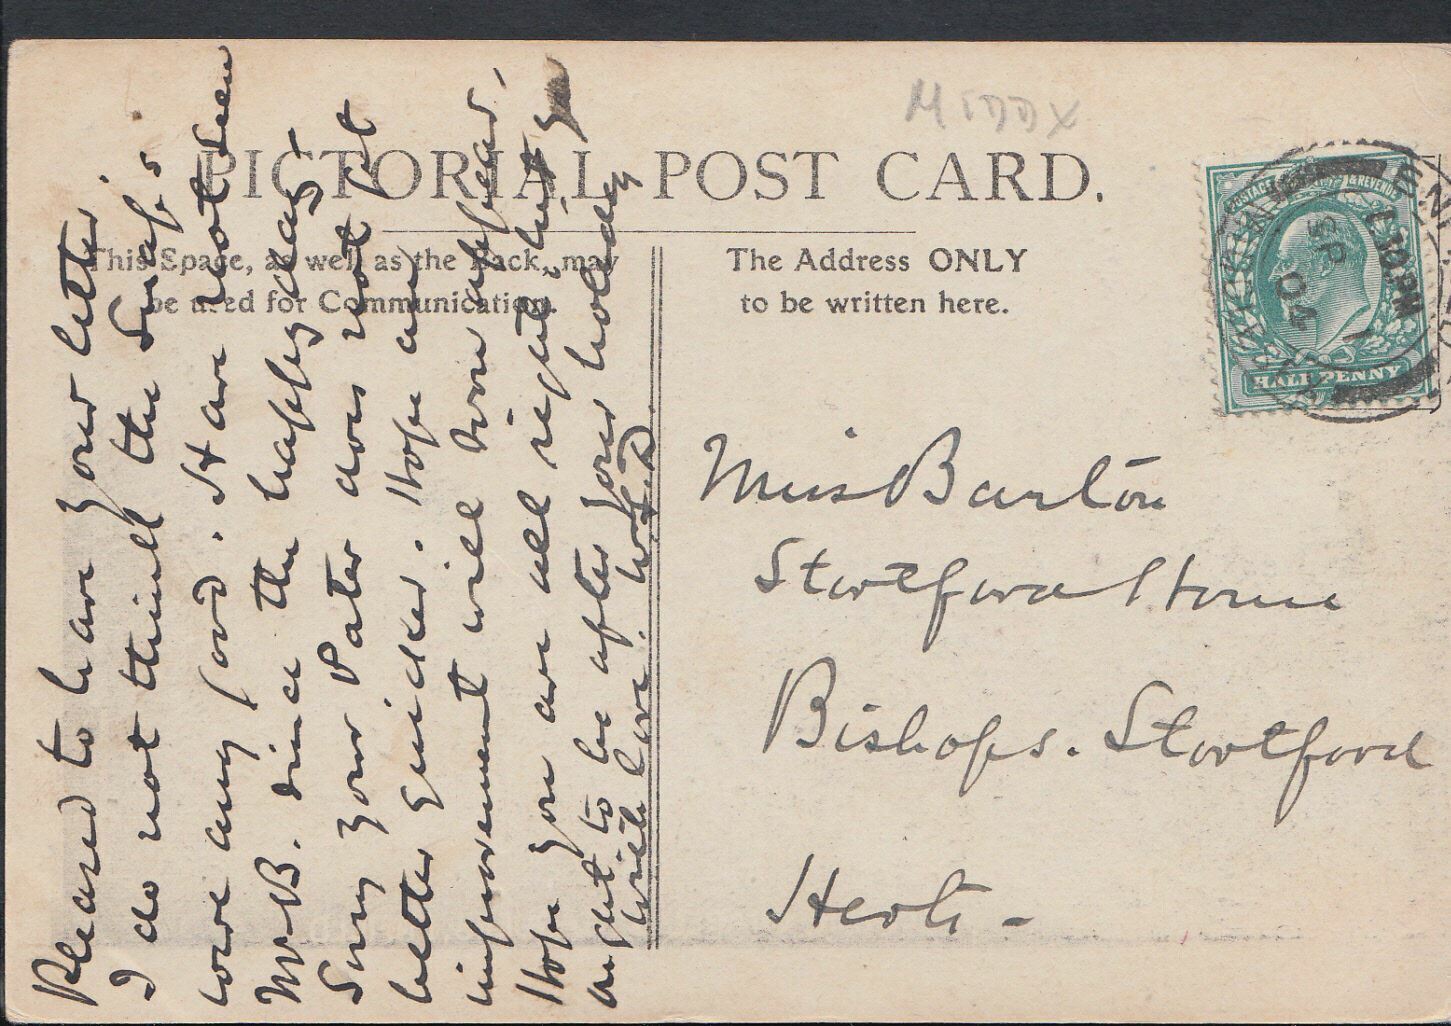 MIDDX
PICTORIAL POST CARD.
This Space, as well as the Back, may
be used for Communication.
The Address ONLY
to be written here.
POSTAGE & REVENUE
HALF PENNY
10 PM
05
Pleased to have your letter.
I do not think the Snaps
were any good. Have not seen
Mr B. since the happy day.
Sorry your Pater does not get
better quicker. Hope an
improvement will soon appear.
Hope you are all right &
ought to be after your holiday
With love.
Miss Barton
Stortford House
Bishops. Stortford
Herts -